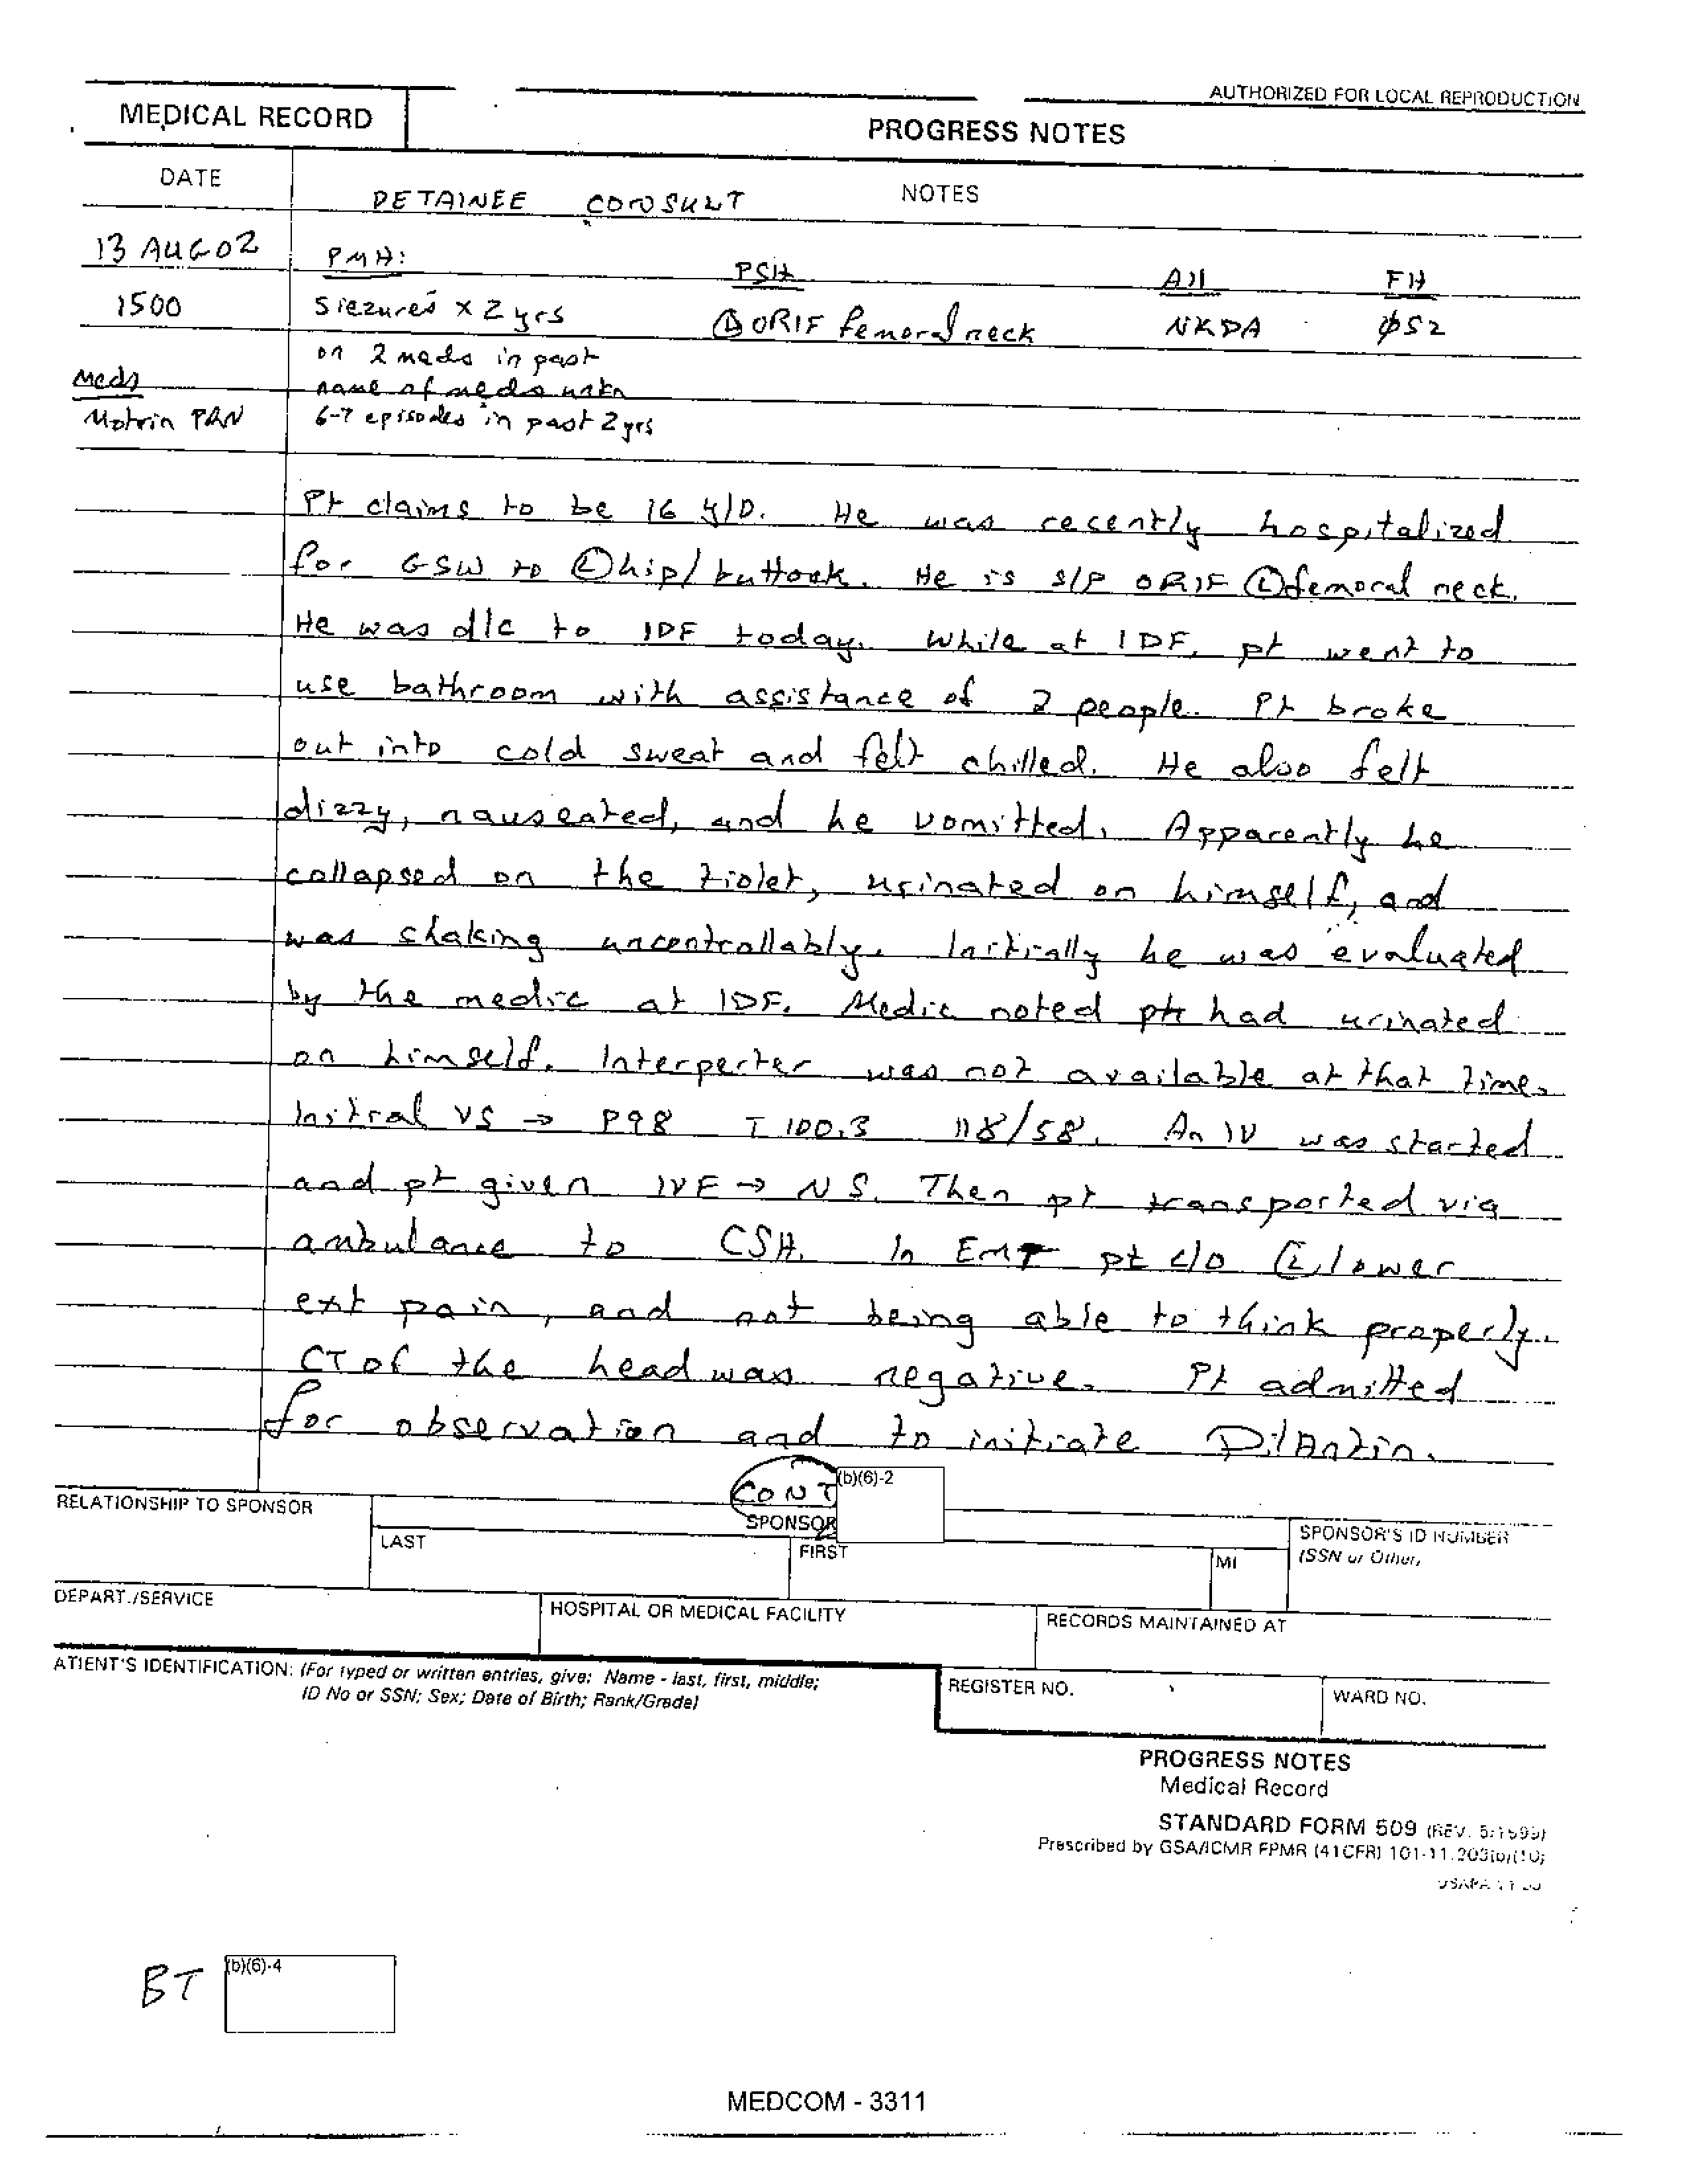 AUTHORIZED FOR LOCAL REPRODUCTION
MEDICAL RECORD
PROGRESS NOTES
DATE
NOTES
DETAINEE CONSULT
13 AUG 02
PMH:
PSH
All
FH
1500
Siezures x 2 yrs
ORIF femoral neck
NKDA
on 2 meds in past
Meds
name of meds unkn
Motrin PRN
6-7 episodes in past 2 yrs
Pt claims to be 16 y/o. He was recently hospitalized
for GSW to Ⓛ hip/buttock. He is s/p ORIF Ⓛ femoral neck.
He was d/c to IDF today. While at IDF, pt went to
use bathroom with assistance of 2 people. Pt broke
out into cold sweat and felt chilled. He also felt
dizzy, nauseated, and he vomitted. Apparently he
collapsed on the tiolet, urinated on himself, and
was shaking uncontrollably. Initially he was evaluated
by the medic at IDF. Medic noted pt had urinated
on himself. Interperter was not available at that time.
Initial VS → P98 T 100.3 118/58. An IV was started
and pt given IVF → NS. Then pt transported via
ambulance to CSH. In EMT pt c/o Ⓛ lower
ext pain, and not being able to think properly.
CT of the head was negative. Pt admitted
for observation and to initiate Dilantin.
CONT
(b)(6)-2
RELATIONSHIP TO SPONSOR
SPONSOR
LAST
FIRST
MI
SPONSOR'S ID NUMBER
(SSN or Other)
DEPART./SERVICE
HOSPITAL OR MEDICAL FACILITY
RECORDS MAINTAINED AT
ATIENT'S IDENTIFICATION: (For typed or written entries, give: Name - last, first, middle;
ID No or SSN; Sex; Date of Birth; Rank/Grade)
REGISTER NO.
WARD NO.
PROGRESS NOTES
Medical Record
STANDARD FORM 509 (REV. 5/1999)
Prescribed by GSA/ICMR FPMR (41CFR) 101-11.203(b)(10)
BT
(b)(6)-4
MEDCOM - 3311